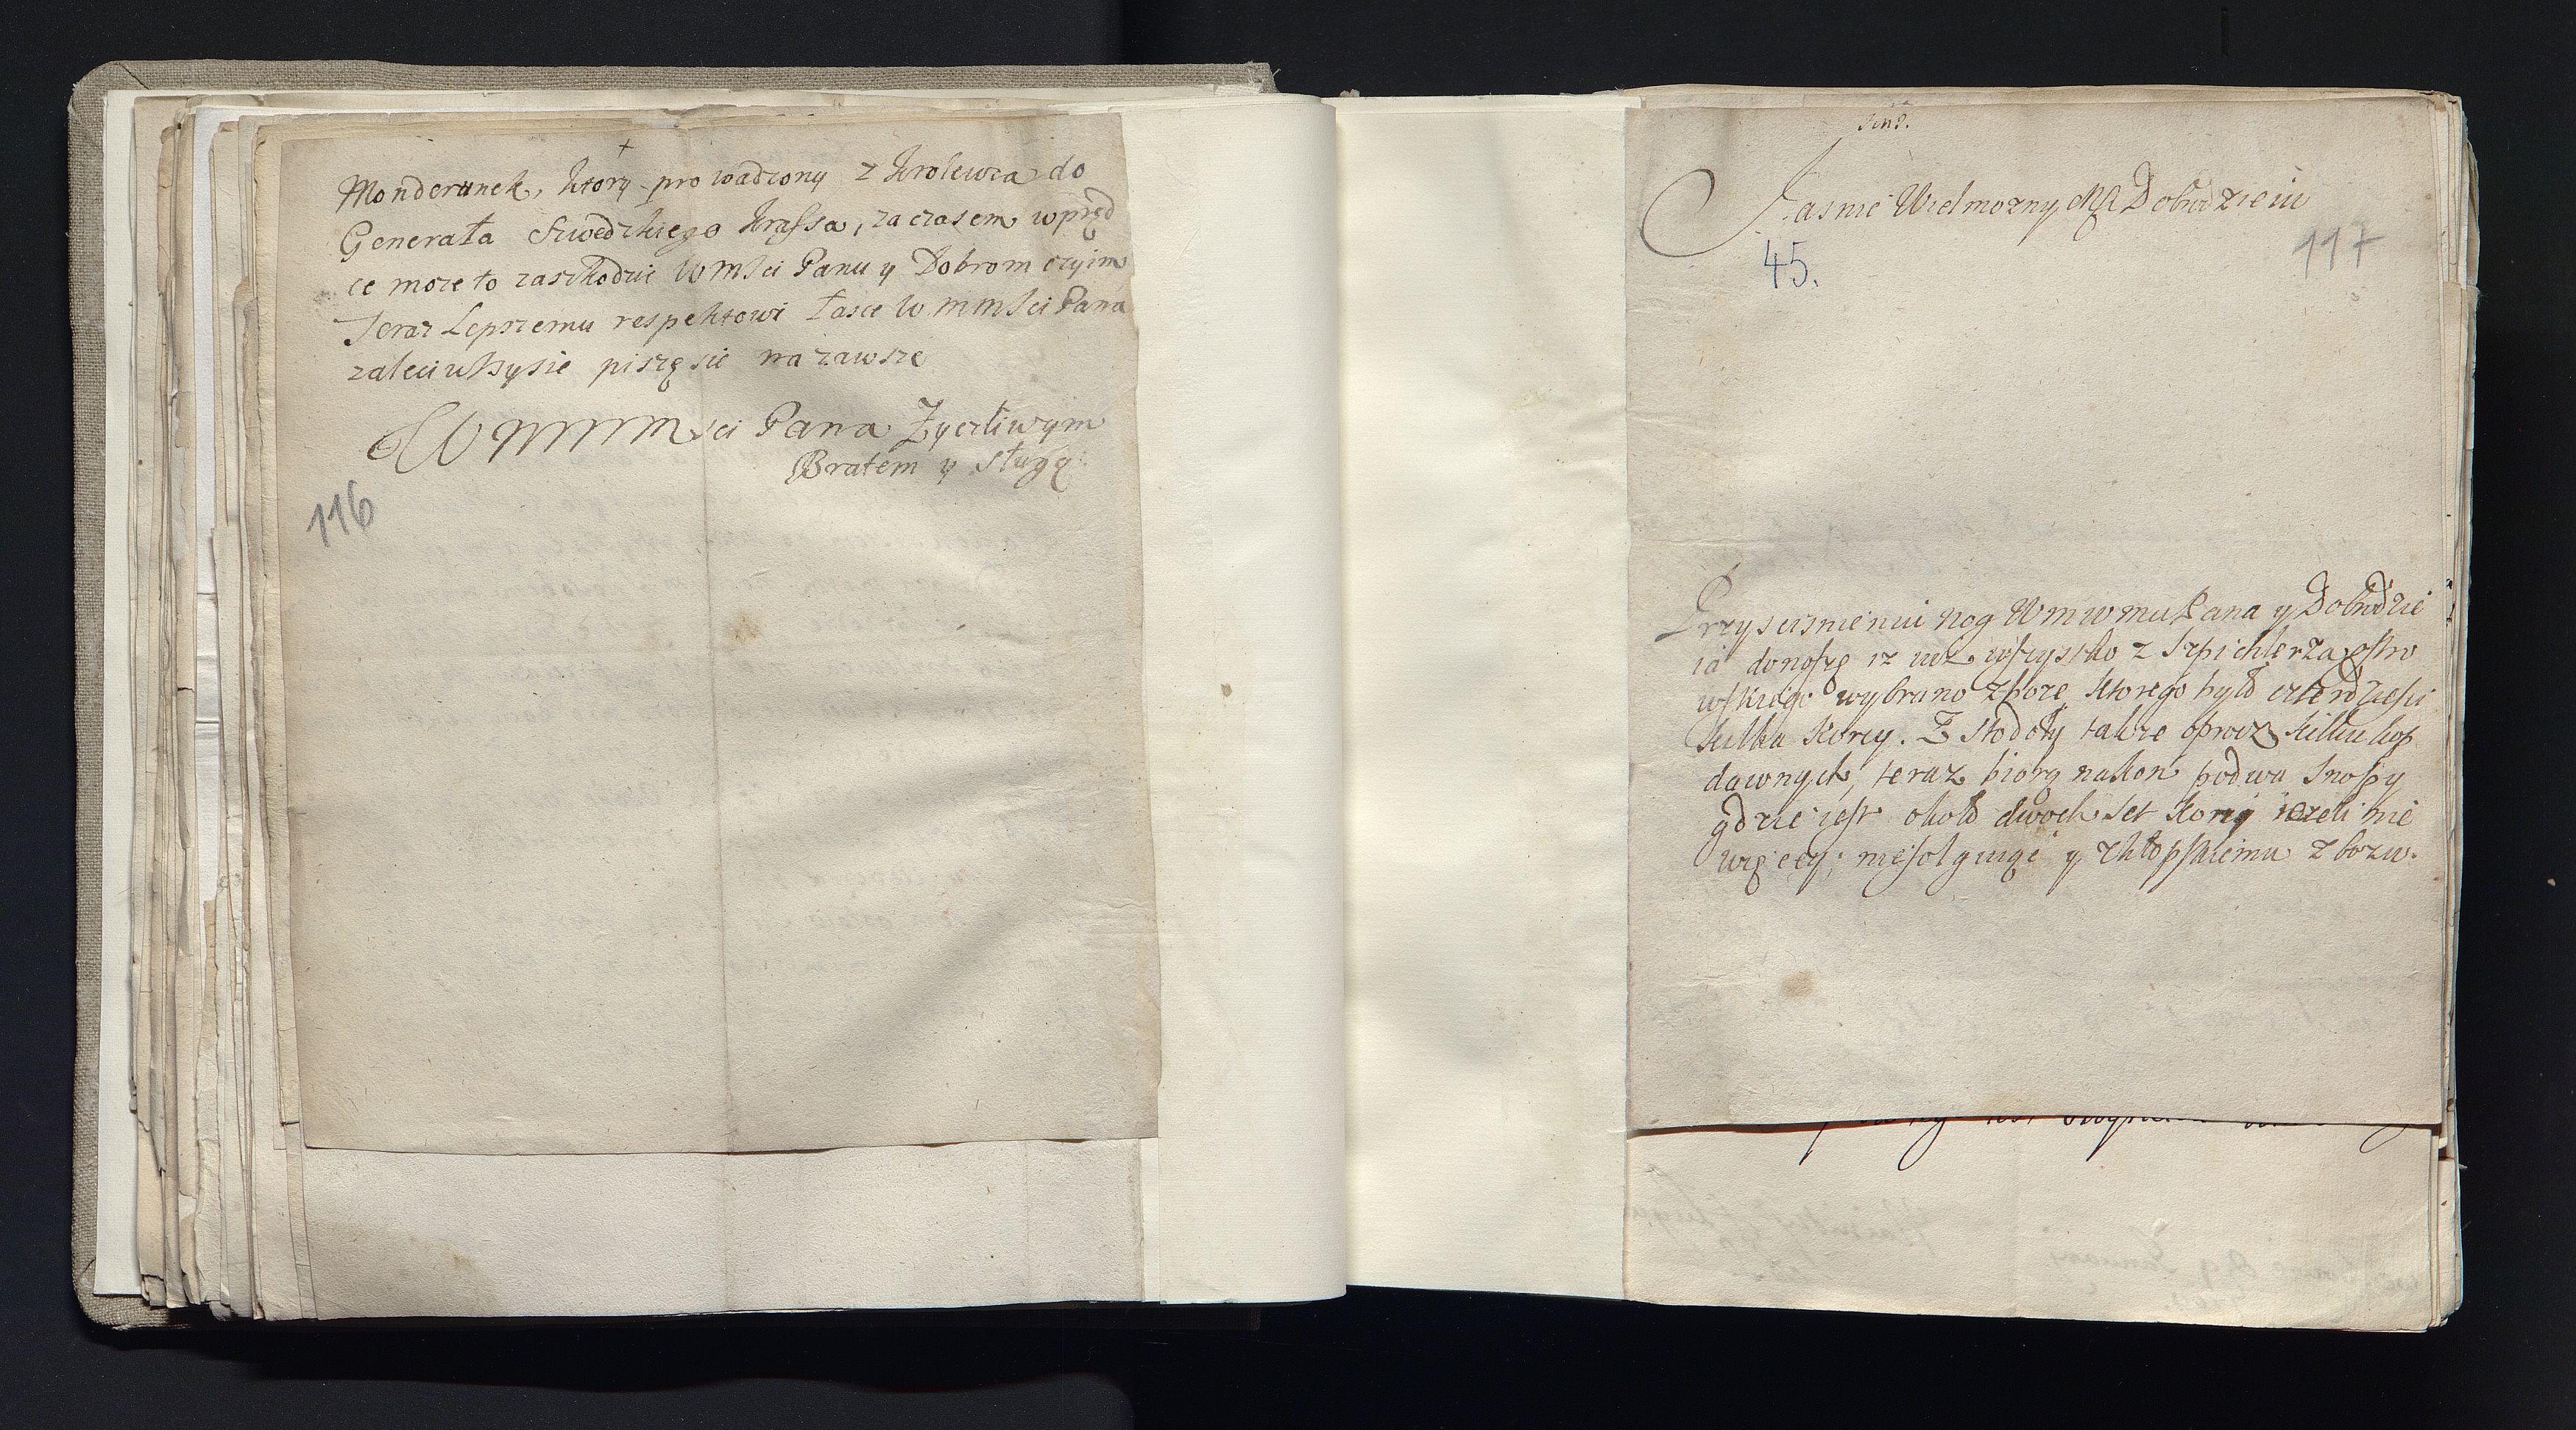 +
Monderunek, ktory prowadzony z Krolewca do
Generała Szwedzkiego Krassa, za czasem w pręd
ce może to zaszkodzic W MSci Panu y Dobrom czyim
Teraz Lepszemu respektowi łasce W M MSci Pana
zaleciwszysie piszę sie na zawsze
W M M M M sci Pana Zyczliwym
Bratem y sługą
116
Jaśnie Wielmozny Mći Dobrodzieiu
45.
117
Przy scisnieniu nog Wm w mu Pana y Dobrodzie
ia donoszę iz iuz wszystko z Szpichlerza ostro
wskiego wybrano zboze, ktorego było czterdziesci
kilka korcy. Z stodoły takze oprocz kilku kop
dawnych, teraz biorą na kon po dwa snopy
gdzie iest około dwoch set kop iezeli nie
więcey; nie folguiąc y chłopskiemu zbozu.